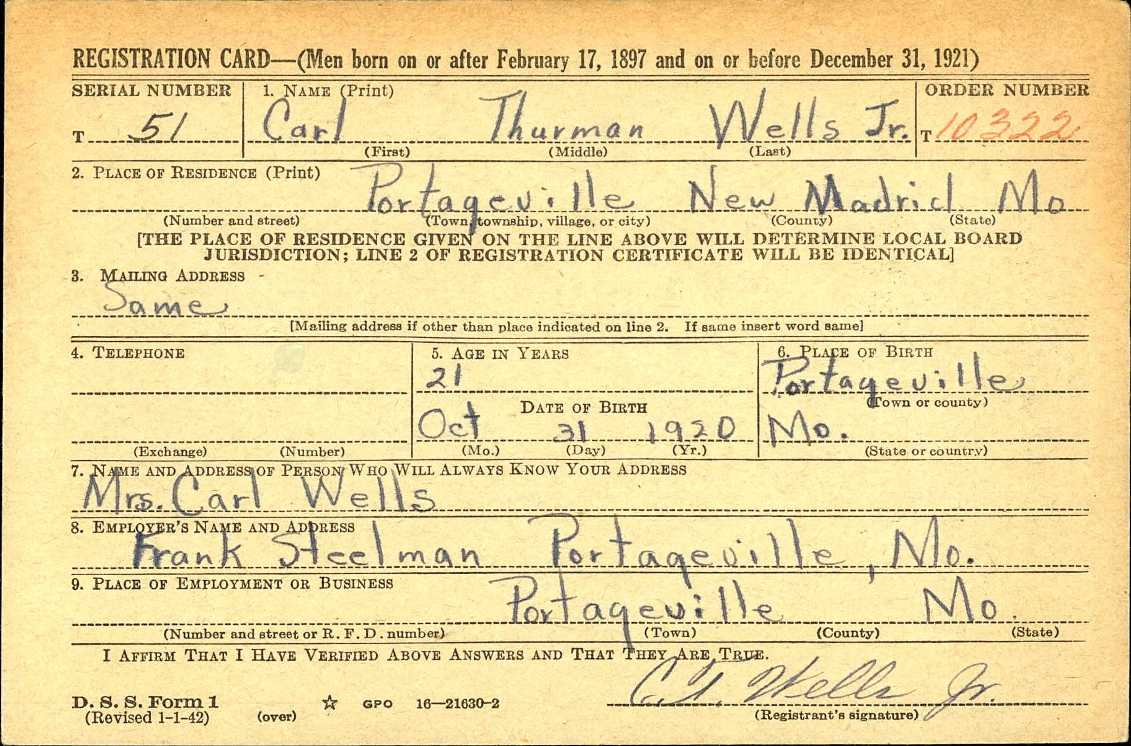 REGISTRATION CARD—(Men born on or after February 17, 1897 and on or before December 31, 1921)
SERIAL NUMBER 1. NAME (Print) ORDER NUMBER
T 51 Carl Thurman Wells Jr. T 10322
(First) (Middle) (Last)
2. PLACE OF RESIDENCE (Print)
Portageville New Madrid Mo
(Number and street) (Town, township, village, or city) (County) (State)
[THE PLACE OF RESIDENCE GIVEN ON THE LINE ABOVE WILL DETERMINE LOCAL BOARD
JURISDICTION; LINE 2 OF REGISTRATION CERTIFICATE WILL BE IDENTICAL]
3. MAILING ADDRESS
Same
[Mailing address if other than place indicated on line 2. If same insert word same]
4. TELEPHONE 5. AGE IN YEARS 6. PLACE OF BIRTH
21 Portageville
DATE OF BIRTH (Town or county)
Oct 31 1920 Mo.
(Exchange) (Number) (Mo.) (Day) (Yr.) (State or country)
7. NAME AND ADDRESS OF PERSON WHO WILL ALWAYS KNOW YOUR ADDRESS
Mrs. Carl Wells
8. EMPLOYER'S NAME AND ADDRESS
Frank Steelman Portageville, Mo.
9. PLACE OF EMPLOYMENT OR BUSINESS
Portageville Mo.
(Number and street or R. F. D. number) (Town) (County) (State)
I AFFIRM THAT I HAVE VERIFIED ABOVE ANSWERS AND THAT THEY ARE TRUE.
C. T. Wells Jr.
D. S. S. Form 1
(Revised 1-1-42) (over) ☆ GPO 16—21630-2 (Registrant's signature)